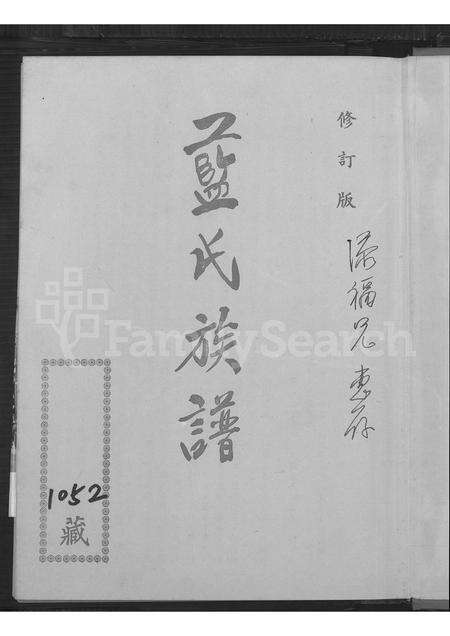 修訂版
添福兄 惠存
藍氏族譜
1052
藏
FamilySearch